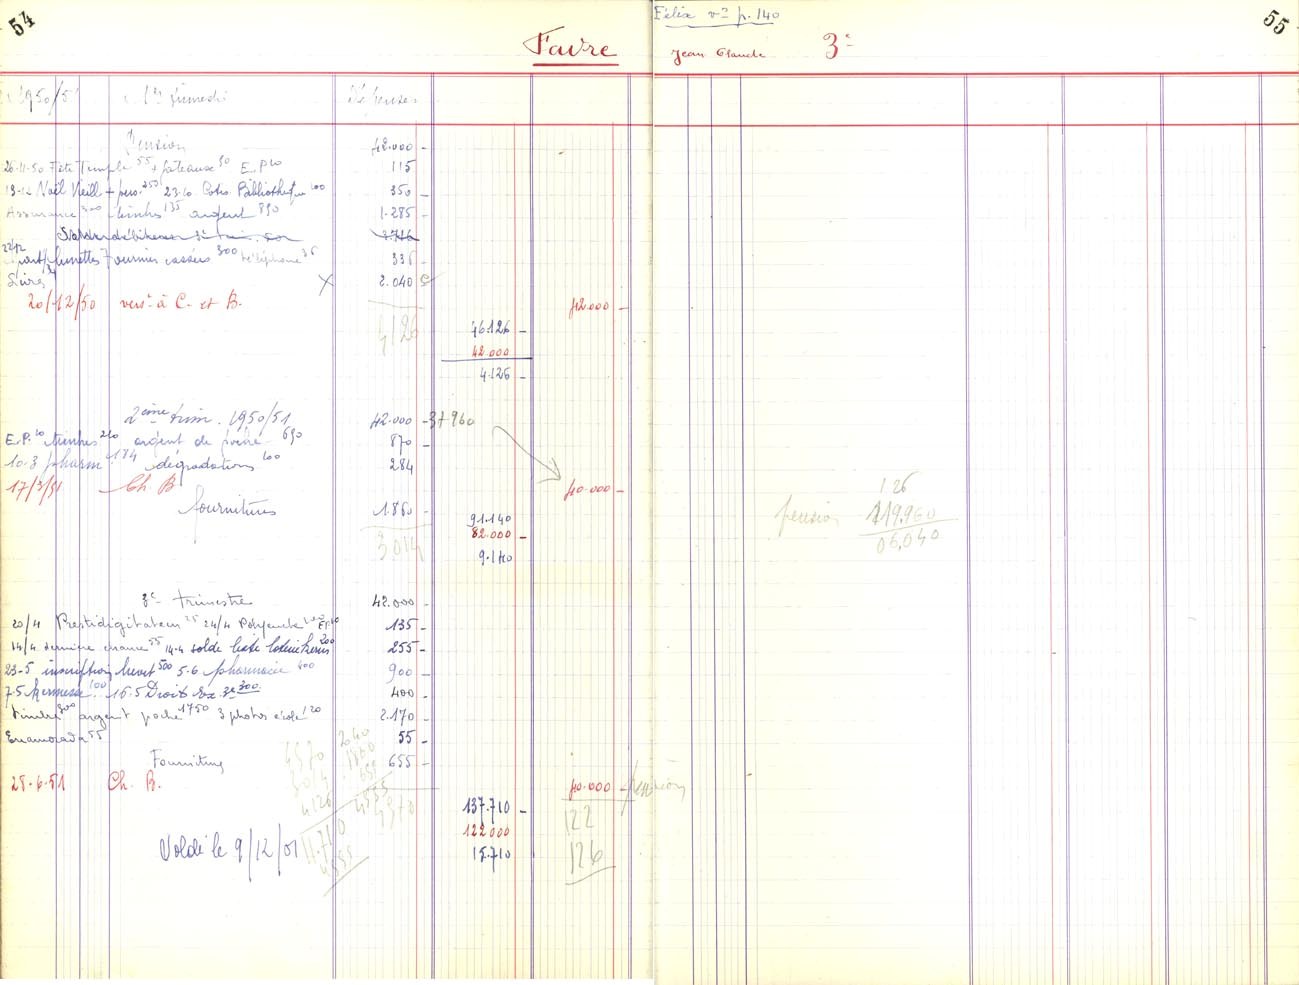 54
Favre
1950/51 1er Trimestre Dépenses
Pension 42.000 -
26-11-50 Fête Temple 55 + gâteaux 50 E.P 10 115
19-12 Noël Vieill + pers. 250 23-10 Cotis Bibliothèque 100 350
Assurance 300 timbres 135 argent 850 1.285
3.716
22/12 lunettes Fournier cassées 300 téléphone 36 336
Livres X 2.040
20/12/50 versé à C. et B. 42.000 -
4126 46.126 -
42.000
4.126 -
2ème trim. 1950/51 42.000 - 37960
E.P. 10 timbres 210 argent de poche 650 870
10-3 pharm. 184 dégradations 100 284
17/3/51 Ch. B 40.000 -
fournitures 1.860
91.140
3014 82.000 -
9.140
3e trimestre 42.000 -
20/4 Prestidigitateur 25 24/4 E.P. 10 135 -
14/4 dernière chance 55 14-4 solde 200 255 -
23-5 inscription brevet 500 5-6 pharmacie 400 900 -
7-5 kermesse 100 16-5 Droits Ex. 300 400 -
timbre 300 argent poche 1750 3 photos école 120 2.170
Enamorada 55 55 -
Fournitures 655 -
25-6-51 Ch. B. 40.000 - pension
4570 2040
3014 1860
4126 655
11.710 4555
4555
137.710 -
122 000
15.710
122
126
Soldé le 9/12/51
Félix vr p. 140
55
Jean Claude 3e
126
pension 119.960
06,040